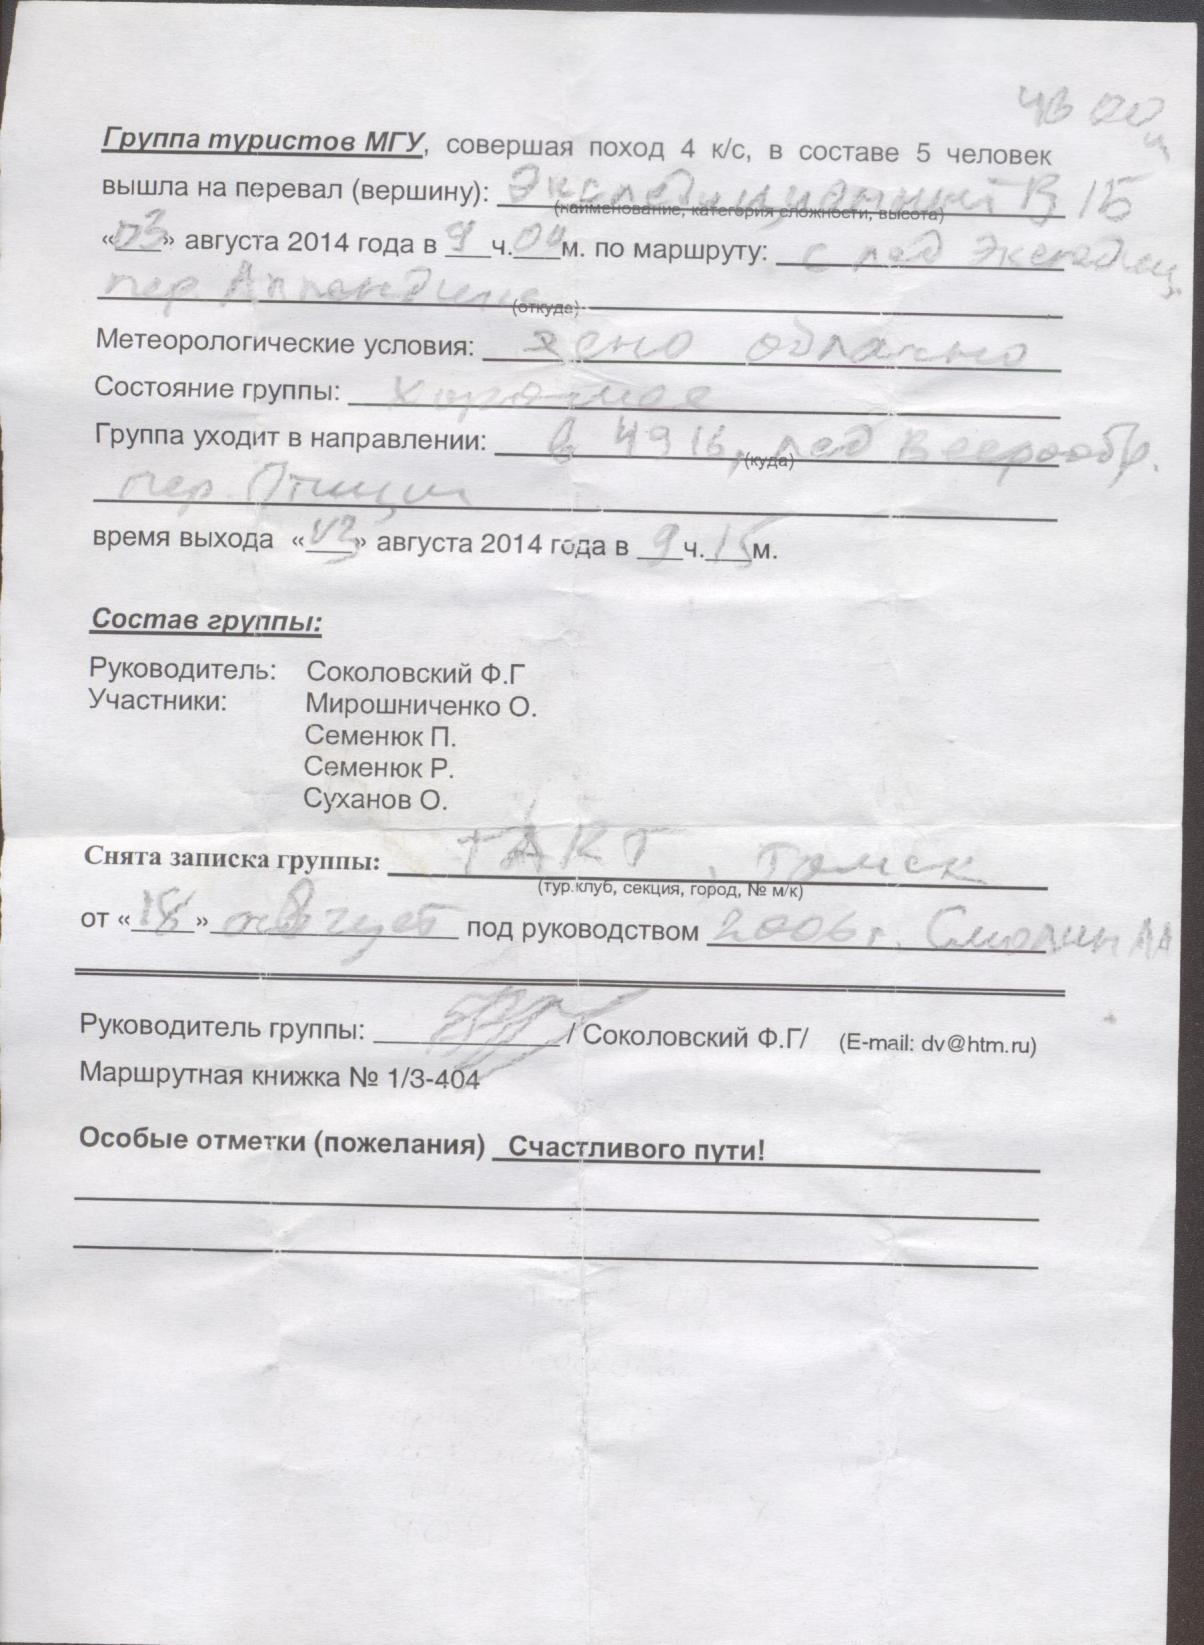 Группа туристов МГУ, совершая поход 4 к/с, в составе 5 человек
вышла на перевал (вершину): Экспедиционный В 1Б
(наименование, категория сложности, высота)
«03» августа 2014 года в 9 ч. м. по маршруту: с лед Экспедиц.
пер.
(откуда)
Метеорологические условия: ясно облачно
Состояние группы: хорошее
Группа уходит в направлении: в лед Веерообр.
(куда)
пер. Птиций
время выхода «03» августа 2014 года в 9 ч. 15 м.
Состав группы:
Руководитель: Соколовский Ф.Г
Участники: Мирошниченко О.
Семенюк П.
Семенюк Р.
Суханов О.
Снята записка группы: ТАКТ, Томск
(тур.клуб, секция, город, № м/к)
от «18» август под руководством 2006 г. Смолин АА
Руководитель группы: / Соколовский Ф.Г/ (E-mail: dv@htm.ru)
Маршрутная книжка № 1/3-404
Особые отметки (пожелания) Счастливого пути!